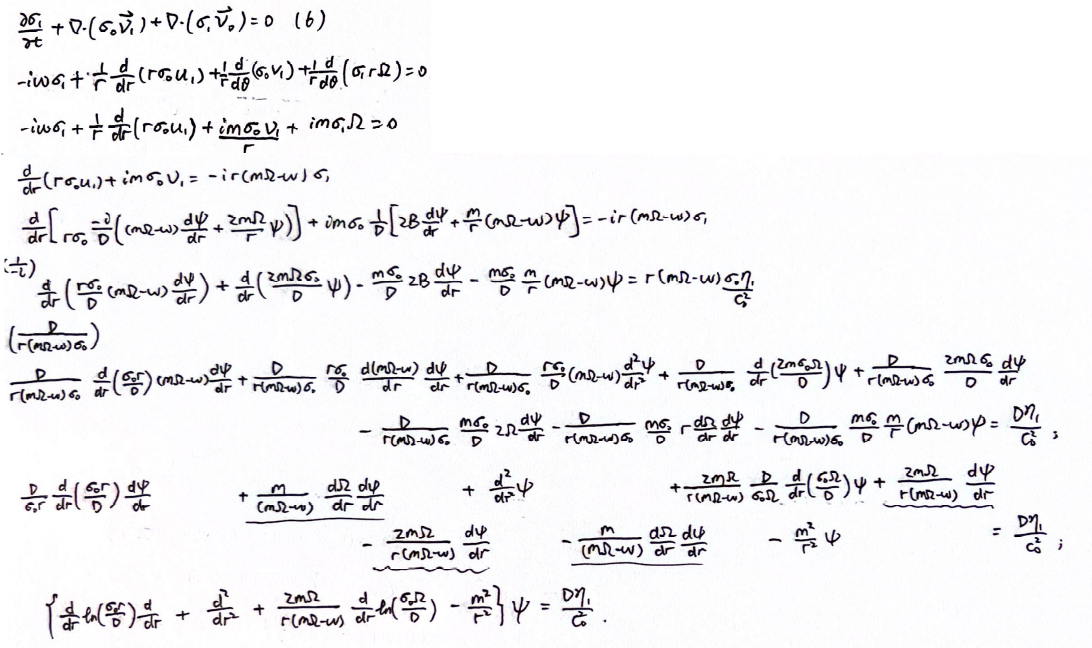 ∂σ₁/∂t + ∇·(σ₀v⃗₁) + ∇·(σ₁v⃗₀) = 0 (6)
-iωσ₁ + 1/r d/dr (rσ₀u₁) + 1/r d/dθ (σ₀v₁) + 1/r d/dθ (σ₁rΩ) = 0
-iωσ₁ + 1/r d/dr (rσ₀u₁) + imσ₀v₁/r + imσ₁Ω = 0
d/dr (rσ₀u₁) + imσ₀v₁ = -ir(mΩ-ω)σ₁
d/dr [rσ₀ -i/D ((mΩ-ω) dψ/dr + 2mΩ/r ψ)] + imσ₀ 1/D [2B dψ/dr + m/r (mΩ-ω)ψ] = -ir(mΩ-ω)σ₁
(1/-i)
d/dr (rσ₀/D (mΩ-ω) dψ/dr) + d/dr (2mΩσ₀/D ψ) - mσ₀/D 2B dψ/dr - mσ₀/D m/r (mΩ-ω)ψ = r(mΩ-ω) σ₀η₁/c₀²
(D/r(mΩ-ω)σ₀)
D/r(mΩ-ω)σ₀ d/dr (σ₀r/D) (mΩ-ω) dψ/dr + D/r(mΩ-ω)σ₀ rσ₀/D d(mΩ-ω)/dr dψ/dr + D/r(mΩ-ω)σ₀ rσ₀/D (mΩ-ω) d²ψ/dr² + D/r(mΩ-ω)σ₀ d/dr (2mσ₀Ω/D) ψ + D/r(mΩ-ω)σ₀ 2mΩσ₀/D dψ/dr
- D/r(mΩ-ω)σ₀ mσ₀/D 2Ω dψ/dr - D/r(mΩ-ω)σ₀ mσ₀/D r dΩ/dr dψ/dr - D/r(mΩ-ω)σ₀ mσ₀/D m/r (mΩ-ω)ψ = Dη₁/c₀² ;
D/σ₀r d/dr (σ₀r/D) dψ/dr + m/(mΩ-ω) dΩ/dr dψ/dr + d²/dr² ψ + 2mΩ/r(mΩ-ω) D/σ₀Ω d/dr (σ₀Ω/D) ψ + 2mΩ/r(mΩ-ω) dψ/dr
- 2mΩ/r(mΩ-ω) dψ/dr - m/(mΩ-ω) dΩ/dr dψ/dr - m²/r² ψ = Dη₁/c₀² ;
{d/dr ln(σ₀r/D) d/dr + d²/dr² + 2mΩ/r(mΩ-ω) d/dr ln(σ₀Ω/D) - m²/r²} ψ = Dη₁/c₀² .